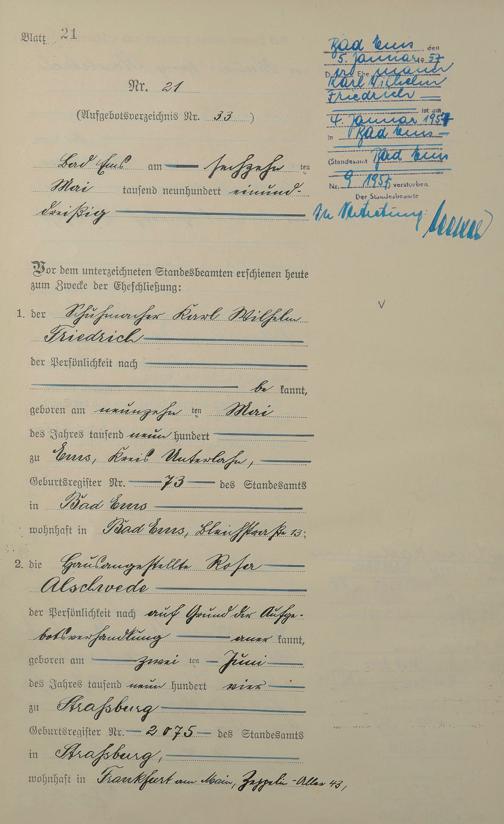 Blatt 21
Nr. 21
(Aufgebotsverzeichnis Nr. 33)
Bad Ems am sechzehn ten
Mai tausend neunhundert einund-
dreißig
Vor dem unterzeichneten Standesbeamten erschienen heute
zum Zwecke der Eheschließung:
1. der Schuhmacher Karl Wilhelm
Friedrich
der Persönlichkeit nach
be kannt,
geboren am neunzehn ten Mai
des Jahres tausend neun hundert
zu Ems, Kreis Unterlahn,
Geburtsregister Nr. 73 des Standesamts
in Bad Ems
wohnhaft in Bad Ems, Bleichstraße 13;
2. die Hausangestellte Rosa
Alschwede
der Persönlichkeit nach auf Grund der Aufge-
botsverhandlung aner kannt,
geboren am zwei ten Juni
des Jahres tausend neun hundert vier
zu Straßburg
Geburtsregister Nr. 2075 des Standesamts
in Straßburg,
wohnhaft in Frankfurt am Main, Zeppelin-Allee 43,
Bad Ems den
5. Januar 1957
D er Ehemann
Karl Wilhelm
Friedrich
ist am
4. Januar 1957
in Bad Ems
(Standesamt Bad Ems
Nr. 9 1957 verstorben.
Der Standesbeamte
In Vertretung